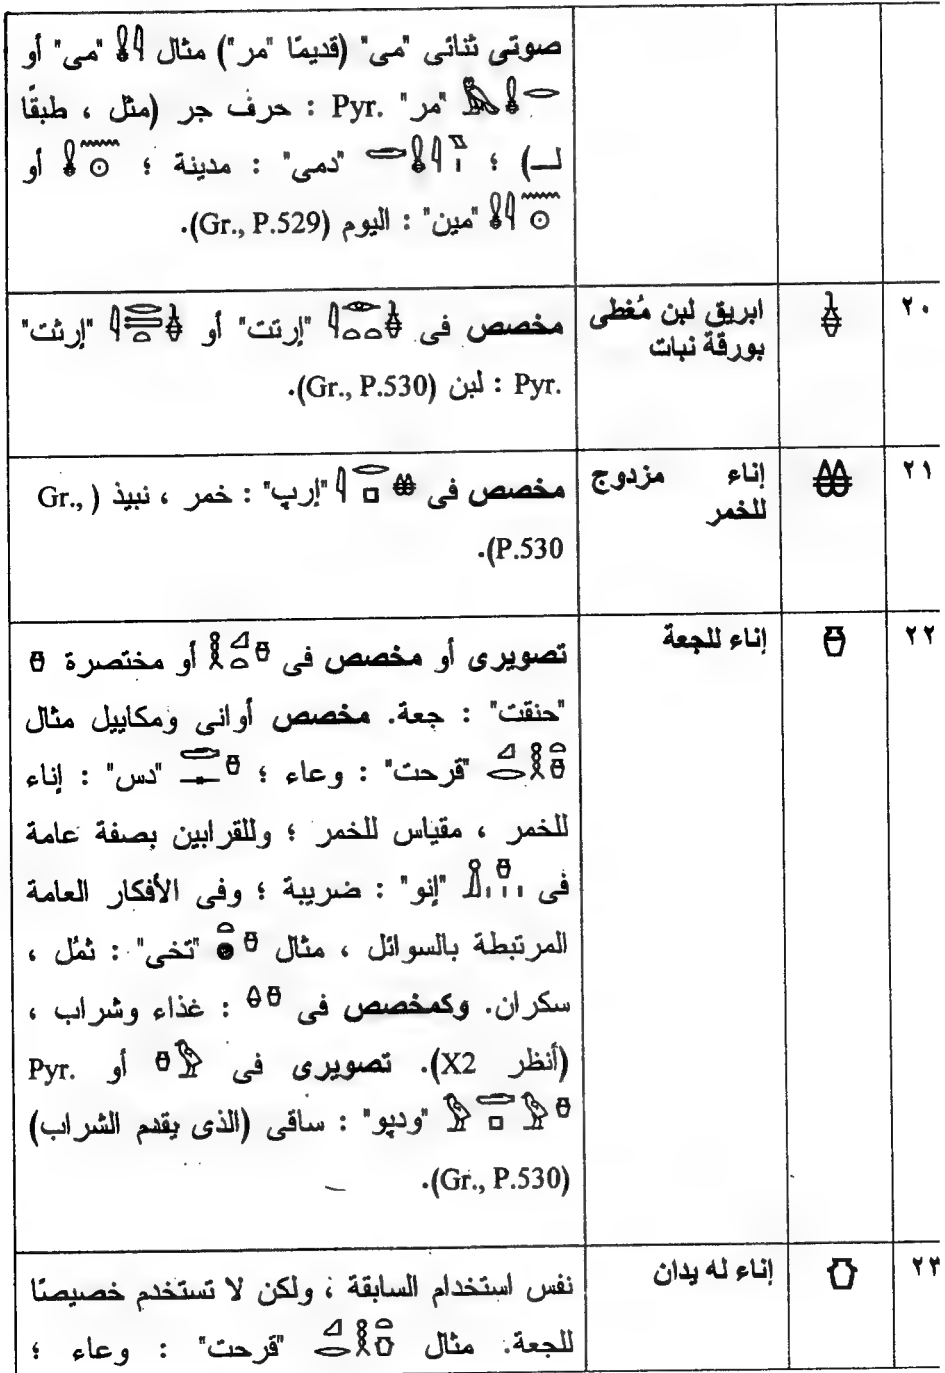 صوتى ثنائى "مى" (قديمًا "مر") مثال 𓇋𓏇 "مى" أو
𓂋𓏇𓅓 "مر" Pyr. : حرف جر (مثل ، طبقًا
لـ) ؛ "دمى" : مدينة ؛ أو
"مين" : اليوم (Gr., P.529).
٢٠ 𓏊 ابريق لبن مُغطى
بورقة نبات
مخصص فى "إرتت" أو "إرثت"
Pyr. : لبن (Gr., P.530).
٢١ 𓏋 إناء مزدوج
للخمر
مخصص فى "إرپ" : خمر ، نبيذ (Gr.,
P.530).
٢٢ 𓏌 إناء للجعة
تصويرى أو مخصص فى أو مختصرة
"حنقت" : جعة. مخصص أوانى ومكاييل مثال
"قرحت" : وعاء ؛ "دس" : إناء
للخمر ، مقياس للخمر ؛ وللقرابين بصفة عامة
فى "إنو" : ضريبة ؛ وفى الأفكار العامة
المرتبطة بالسوائل ، مثال "تخى" : ثمُل ،
سكران. وكمخصص فى : غذاء وشراب ،
(أنظر X2). تصويرى فى أو Pyr.
"ودپو" : ساقى (الذى يقدم الشراب)
(Gr., P.530).
٢٣ إناء له يدان
نفس استخدام السابقة ، ولكن لا تستخدم خصيصًا
للجعة. مثال "قرحت" : وعاء ؛